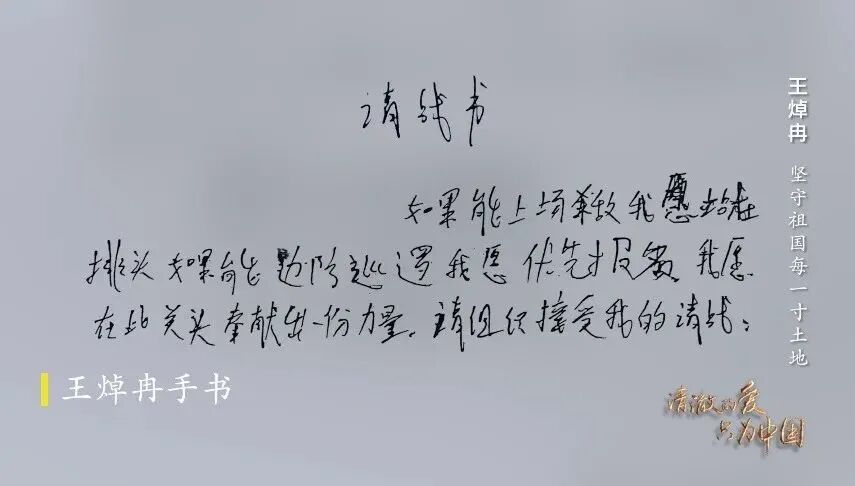 请战书
如果能上场杀敌我愿站在
排头如果能边防巡逻我愿优先报名，我愿
在此关头奉献出一份力量。请组织接受我的请战：
王焯冉手书
王焯冉 坚守祖国每一寸土地
清澈的爱
只为中国